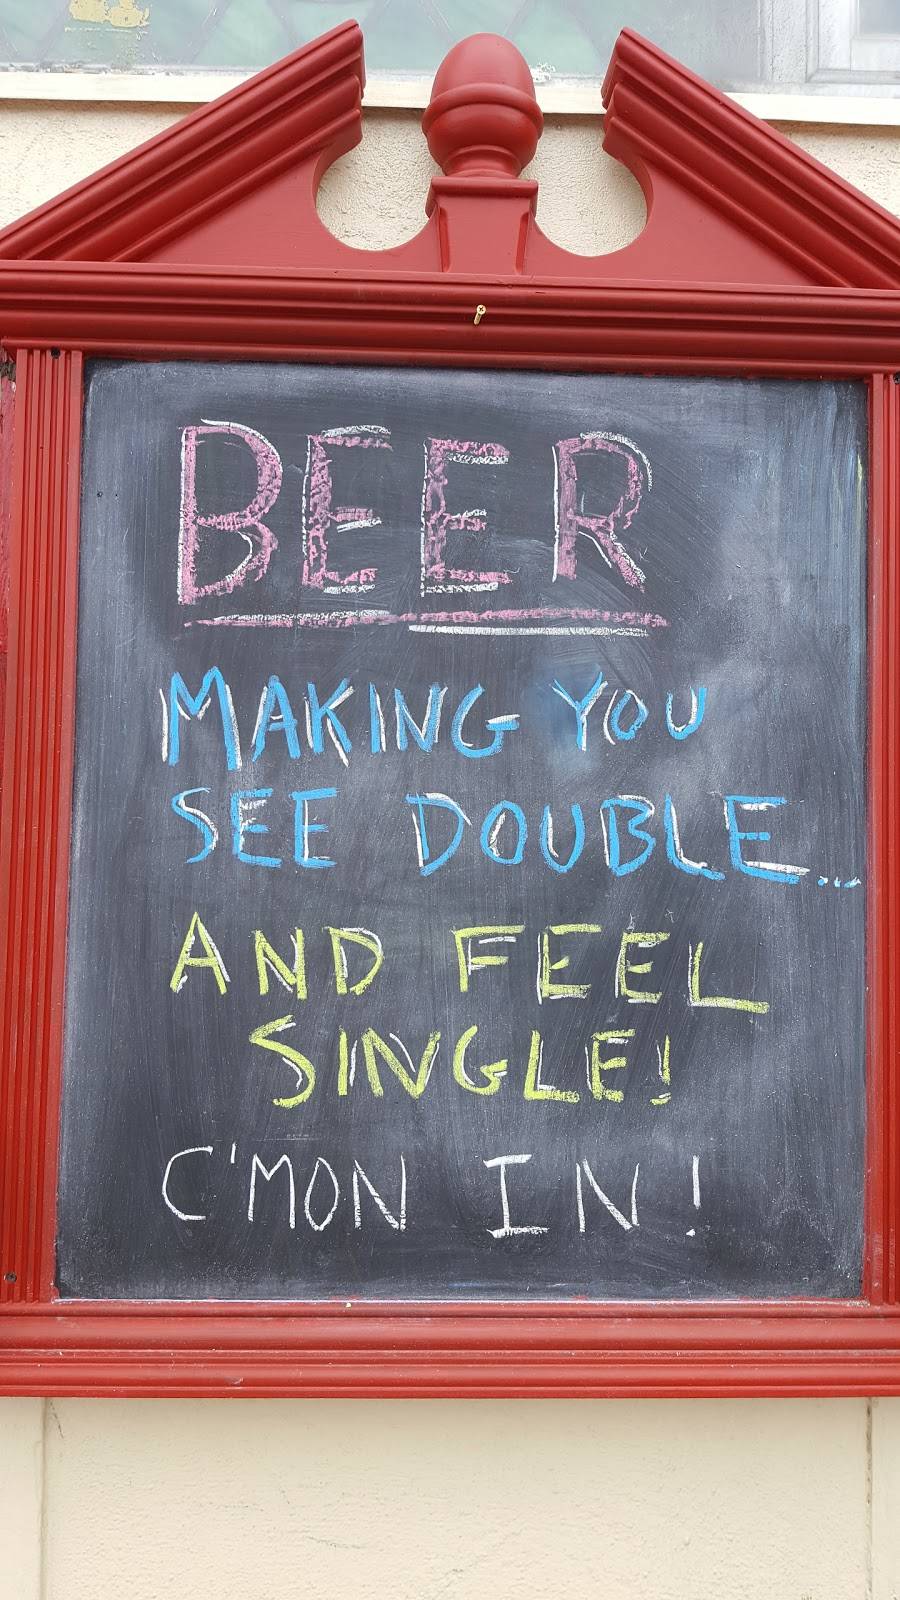 BEER
MAKING YOU
SEE DOUBLE...
AND FEEL
SINGLE!
C'MON IN!